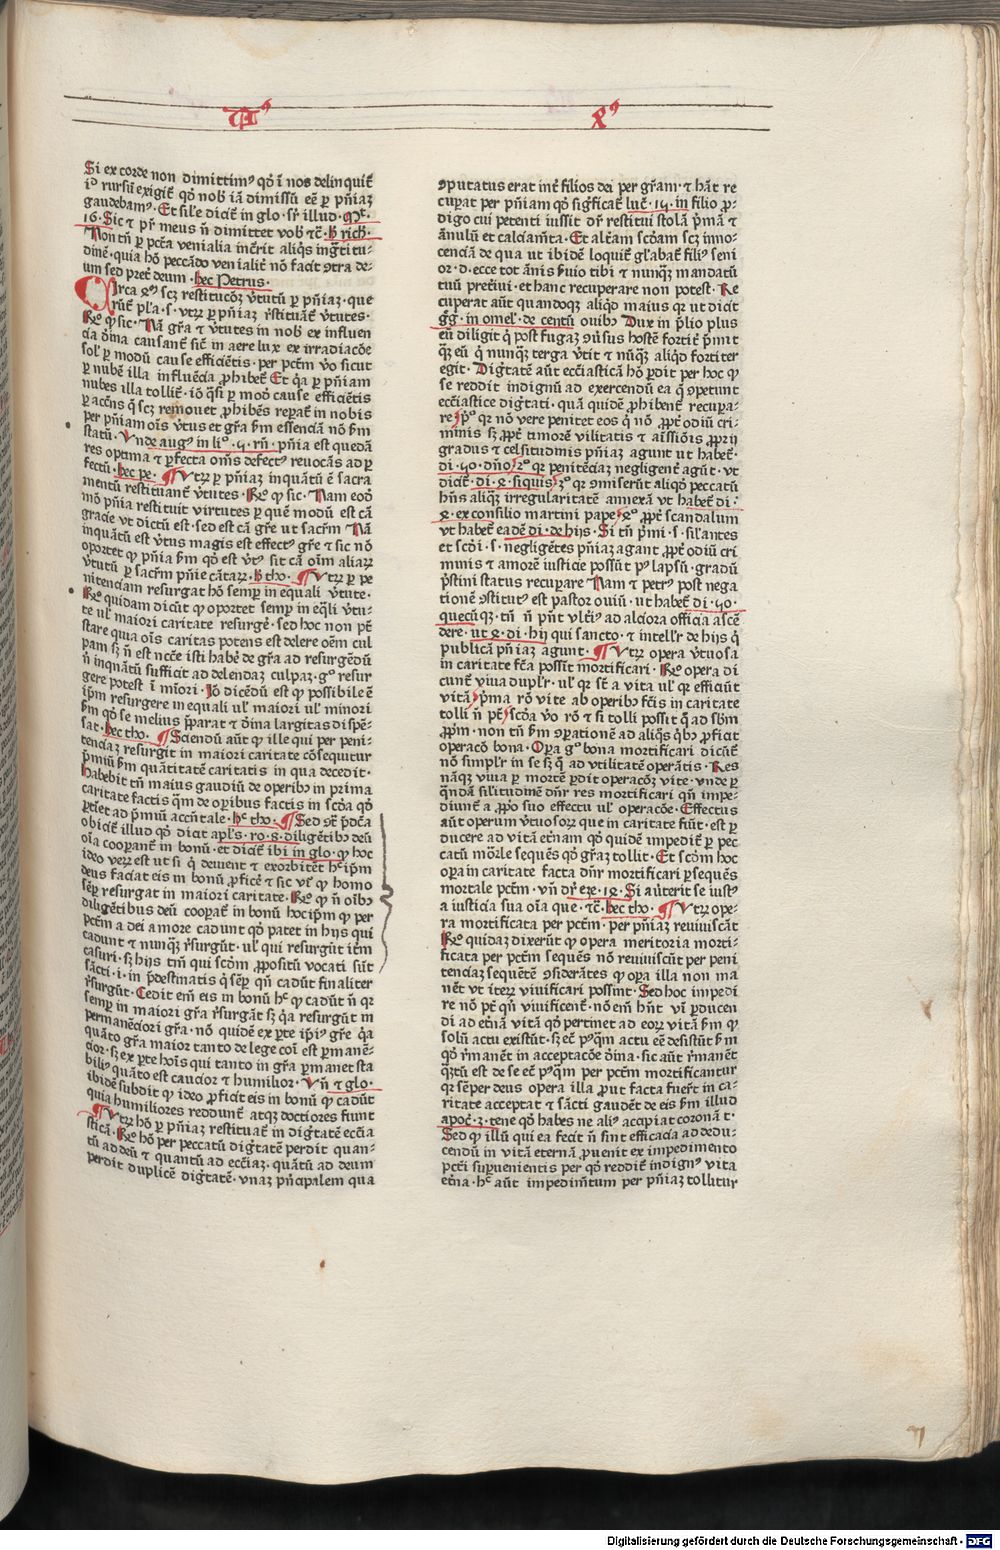 Si ex corde non dimittimꝰ qd̛ ī nos deliquit̄
iᵒ rursū exigit̄ qd̛ nob̄ iā dimissū eē p pn̄iaꝫ
gaudebamꝰ· Et sil̄e dicit̄ in glo· sr̄ illud·Mt̄·
16· Sic ⁊ pr̄ meus n̄ dimittet vob̄ ⁊c̄· h̄ rich·
Non tn̄ p pctā venialia incr̄it aliqͥs ingͣtitu-
dinē· quia hō peccādo venialit̄ nō facit ꝯtra de-
um sed pret̄ deum· hec Petrus·
Circa ꝗꝰ scꝫ restitucōꝫ v̄tutū p pn̄iaꝫ· que
rūt̄ pl̄a· s· vtꝝ p pn̄iaꝫ r̄stituāt̄ v̄tutes·
Rꝰ ꝙ sic· Nā gr̄a ⁊ v̄tutes in nob̄ ex influen
cia d̄ina causant̄ sic̄ in aere lux ex irradiacōe
sol̄ p modū cause efficiētis· per pctm̄ v̄o sicut
p nubē illa influēcia ꝓhibet̄ Et qͥa p pn̄iam
nubes illa tollit̄· iō qͣsi p modū cause efficiētis
p accn̄s qͥ scꝫ remouet ꝓhibēs reparāt̄ in nobis
per pn̄iam oīs v̄tus et gr̄a ẜm essenciā nō ẜm
statū· Vnde augꝰ in liᵒ· de· rn̄· pn̄ia est quedā
res optima ⁊ ꝑfecta om̄s defectꝰ reuocās ad ꝑ
fectū· hec pe· ¶ Vtꝝ p pn̄iaꝫ inquātū ē sacra
mentū restituant̄ v̄tutes· Rꝰ ꝙ sic· Nam eoō
mō pn̄ia restituit virtutes p quē modū est cā
gracie vt dictū est· sed est cā gr̄e ut sacr̄m Nā
inquātū est v̄tus magis est effectꝰ gr̄e ⁊ sic nō
oportet ꝙ pn̄ia ẜm qd̛ est v̄tꝰ sit cā oīm aliaꝝ
v̄tutū p sacr̄m pn̄ie cātaꝝ· h̄ tho· ¶ Vtꝝ p pe
nitenciam resurgat hō semp̄ in equali v̄tute·
Rꝰ quidam dicūt ꝙ oportet semp̄ in eq̄li v̄tu-
te ul̄ maiori caritate resurgē· sed hoc non pt̄
stare quia oīs caritas potens est delere oēm cul
pam sꝫ n̄ est nccē isti habē de gr̄a ad resurgēdū
n̄ inquātū sufficit ad delendaꝫ culpaꝫ· gͦ resur
gere potest ī mīori· Iō dicēdū est ꝙ possibile ē
ip̄m resurgere in equali ul̄ maiori ul̄ minori
ẜm qd̛ se melius p̄parat ⁊ d̄ina largitas dispē-
sat· hec tho· ¶ Sciendū aūt ꝙ ille qui per peni-
tenciaꝫ resurgit in maiori caritate cōsequitur
p̄miū ẜm quātitatē caritatis in qua decedit·
habebit tn̄ maius gaudiū de operibꝰ in prima
caritate factis qͣm de op̄ibus factis in scōa qd̛
ꝑtīet ad p̄miū accn̄tale· hͨ tho· ¶ Sed ꝯͣ p̄dcā
obicit̄ illud qd̛ dicit apl̄s· ro· 8· diligētibꝰ deū
oīa coopant̄ in bonū· et dicit̄ ibi in glo· ꝙ hoc
ideo veꝝ est ut si qͥ deuient ⁊ exorbitēt hͨ ip̄m
deus faciat eis in bonū ꝓficē ⁊ sic vr̄ ꝙ homo
sēp̄ resurgat in maiori caritate· Rꝰ ꝙ n̄ oīb̄
diligētibus deū coopat̄ in bonū hoc ip̄m ꝙ per
pctm̄ a dei amore cadunt qd̛ patet in hijs qui
cadunt ⁊ nunqꝫ r̄surgūt· ul̄ qui resurgūt itēm
casuri· sꝫ hijs tm̄ qui scōm ꝓpositū vocati sūt
sācti· i· in p̄destinatis qͥ sēp̄ qn̄ cadūt finaliter
r̄surgūt· Cedit em̄ eis in bonū hͨ ꝙ cadūt n̄ qꝛ
semp̄ in maiori gr̄a r̄surgāt sꝫ qͥa resurgūt in
permanēciori gr̄a· nō quidē ex ꝑte ip̄iꝰ gr̄e qͥa
quāto gr̄a maior tanto de lege coī est ꝑmanē-
cior· sꝫ ex ꝑte hoīs qui tanto in gr̄a ꝑmanet sta
biliꝰ quāto est caucior ⁊ humilior· Vn̄ ⁊ glo·
ibidē subdit ꝙ ideo ꝓficit eis in bonū ꝙ cadūt
quia humiliores reddunt̄ atqꝫ doctiores fiunt
¶ Vtꝝ hō p pn̄iaꝫ restituat̄ in dignitatē eccīa
sticā· Rꝰ hō per peccatū dignitatē perdit quan-
tū ad deū ⁊ quantū ad ecc̄iaꝫ· quātū ad deum
perdit duplicē dignitatē· vnaꝫ pn̄cipalem qua
ꝯputatus erat int̄ filios dei per gr̄am· ⁊ hāc re
cup̄at per pn̄iam qd̛ sig̅ficat̄ luc̄· 15· in filio ꝓ-
digo cui petenti iussit dn̄r restitui stolā p̄mā ⁊
ānulū et calciam̄ta· Et alt̄am scōam scꝫ inno-
cenciā de qua ut ibidē loquit̄ gl̄abat̄ filiꝰ seni
or· d· ecce tot ānis ẜuio tibi ⁊ nunqꝫ mandatū
tuū pret̄iui· et hanc recuperare non potest· Re
cuperat aūt quandoqꝫ aliqd̛ maius qꝛ ut dicit
gͣg̅· in omel̄· de centū ouibꝰ Dux in p̄lio plus
eū diligit qͥ post fugaꝫ ꝯuersus hostē fortit̄ p̄mit
qͣꝫ eū qͥ nunqꝫ terga v̄tit ⁊ nūqꝫ aliqd̛ fortiter
egit· Dignitatē aūt ecclīasticā hō ꝑdit per hoc ꝙ
se reddit indignū ad exercendū ea qͣ ꝯpetunt
eccīastice dignitati· quā quidē ꝓhibent̄ recupera-
re pͦ qꝛ nō vere penitet eos qͥ nō ꝓpt̄ odiū cri-
minis sꝫ ꝓpt̄ timorē vilitatis ⁊ amissiōis ꝓprij
gradus ⁊ celsitudinis pn̄iaꝫ agunt ut habet̄·
di· 50· dn̄o 2ᵒ qꝛ penitēciaꝫ negligent̄ agūt· vt
dicit̄· di· 8· siquis 3ᵒ qꝛ ꝯmiserūt aliqd̛ peccatū
hn̄s aliqͣꝫ irregularitatē annexā vt habet̄ di·
8· ex consilio martini pape 4ᵒ ꝓpt̄ scandalum
vt habet̄ eadē di· de hijs· Si tn̄ p̄mi· s· sil̄antes
et scōi· s· negligētes pn̄iaꝫ agant· ꝓpt̄ odiū cri
minis ⁊ amorē iusticie possūt pꝰ lapsū· gradū
p̄stini status recuperare Nam ⁊ petrꝰ post nega
tionē ꝯstitutꝰ est pastor ouiū· ut habet̄ di· 50·
quecūqꝫ· tn̄ n̄ pn̄t vlt̄iꝰ ad alciora officia ascē
dere· ut 8· di· hij qui sancto· ⁊ intell̄r de hijs qͥ
publicā pn̄iaꝫ agunt· ¶ Vtꝝ opera v̄tuosa
in caritate fc̄a possīt mortificari· Rꝰ opera di
cunt̄ viua duplr̄· ul̄ qꝛ st̄ a vita ul̄ qꝛ efficiūt
vitā p̄ma rō vite ab operibꝰ fc̄is in caritate
tolli n̄ pt̄ scōa v̄o rō ⁊ si tolli possit qͥ ad sb̄m
ꝓp̄m· non tn̄ ẜm ꝯꝑationē ad aliqͦs qͥbꝰ ꝓficiat
operacō bona· Opa gͦ bona mortificari dicūt̄
nō simplr̄ in se sꝫ qͥ ad vtilitatē operātis· Res
nāqꝫ viua p mortē ꝑdit operacōꝫ vite· vnde p
qͣndā sil̄itudinē dn̄r res mortificari qn̄ impe-
diunt̄ a ꝓpͦo suo effectu ul̄ operacōe· Effectus
aūt operum v̄tuosoꝝ que in caritate fiūt· est ꝑ
ducere ad vitā et̄nam qd̛ quidē impedit̄ p pec
catū mōrle sequēs qd̛ gr̄aꝫ tollit· Et scōm hoc
opa in caritate facta dn̄r mortificari p sequēs
mortale pctm̄· vn̄ dr̄ eze· 18· Si aūterit se iustꝰ
a iusticia sua oīa que· ⁊c̄· hec tho· ¶ Vtꝝ ope-
ra mortificata per pctm̄· per pn̄iaꝫ reuiuiscāt
Rꝰ quidaꝫ dixerūt ꝙ opera meritoria morti-
ficata per pctm̄ sequēs nō reuiuiscūt per peni
tenciaꝫ sequētē ꝯsiderātes ꝙ op̄a illa non ma
nēt vt iteꝝ viuificari possint· Sed hoc impedi
re nō pt̄ qn̄ viuificent̄· nō em̄ hn̄t vī ꝑducen
di ad et̄nā vitā qd̛ pertinet ad eoꝝ vitā ẜm ꝙ
solū actu existūt· sꝫ ec̄ pꝰqͣm actu eē desistūt ẜm
qd̛ r̄manēt in acceptacōe d̄ina· sic aūt r̄manēt
qͣꝫtū est de se ec̄ pꝰqͣm per pctm̄ mortificantur
qꝛ sēper deus opera illa ꝓut facta fuer̄t in ca-
ritate acceptat ⁊ sācti gaudēt de eis ẜm illud
apoc̄· 3· tene qd̛ habes ne aliꝰ accipiat coronā t·
Sed ꝙ illū qui ea fecit n̄ sint efficacia ad dedu-
cendū in vitā eternā ꝓuenit ex impedimento
pctī supuenientis per qd̛ reddit̄ indignꝰ vita
et̄na· hͨ aūt impedim̄tum per pn̄iaꝫ tollitur
Digitalisierung gefördert durch die Deutsche Forschungsgemeinschaft - DFG